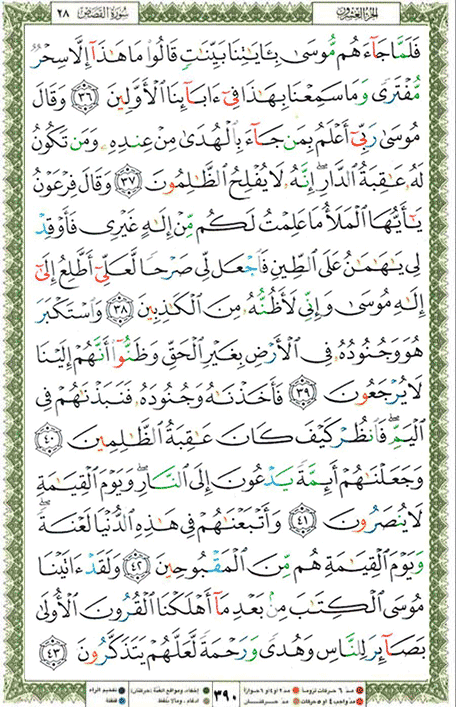 الجزء العشرون
سُورَةُ القَصَصِ ٢٨
فَلَمَّا جَآءَهُم مُّوسَىٰ بِـَٔايَـٰتِنَا بَيِّنَـٰتٍ قَالُوا۟ مَا هَـٰذَآ إِلَّا سِحْرٌ
مُّفْتَرًى وَمَا سَمِعْنَا بِهَـٰذَا فِىٓ ءَابَآئِنَا ٱلْأَوَّلِينَ ٣٦ وَقَالَ
مُوسَىٰ رَبِّىٓ أَعْلَمُ بِمَن جَآءَ بِٱلْهُدَىٰ مِنْ عِندِهِۦ وَمَن تَكُونُ
لَهُۥ عَـٰقِبَةُ ٱلدَّارِ ۖ إِنَّهُۥ لَا يُفْلِحُ ٱلظَّـٰلِمُونَ ٣٧ وَقَالَ فِرْعَوْنُ
يَـٰٓأَيُّهَا ٱلْمَلَأُ مَا عَلِمْتُ لَكُم مِّنْ إِلَـٰهٍ غَيْرِى فَأَوْقِدْ
لِى يَـٰهَـٰمَـٰنُ عَلَى ٱلطِّينِ فَٱجْعَل لِّى صَرْحًا لَّعَلِّىٓ أَطَّلِعُ إِلَىٰٓ
إِلَـٰهِ مُوسَىٰ وَإِنِّى لَأَظُنُّهُۥ مِنَ ٱلْكَـٰذِبِينَ ٣٨ وَٱسْتَكْبَرَ
هُوَ وَجُنُودُهُۥ فِى ٱلْأَرْضِ بِغَيْرِ ٱلْحَقِّ وَظَنُّوٓا۟ أَنَّهُمْ إِلَيْنَا
لَا يُرْجَعُونَ ٣٩ فَأَخَذْنَـٰهُ وَجُنُودَهُۥ فَنَبَذْنَـٰهُمْ فِى
ٱلْيَمِّ ۖ فَٱنظُرْ كَيْفَ كَانَ عَـٰقِبَةُ ٱلظَّـٰلِمِينَ ٤٠
وَجَعَلْنَـٰهُمْ أَئِمَّةً يَدْعُونَ إِلَى ٱلنَّارِ ۖ وَيَوْمَ ٱلْقِيَـٰمَةِ
لَا يُنصَرُونَ ٤١ وَأَتْبَعْنَـٰهُمْ فِى هَـٰذِهِ ٱلدُّنْيَا لَعْنَةً ۖ
وَيَوْمَ ٱلْقِيَـٰمَةِ هُم مِّنَ ٱلْمَقْبُوحِينَ ٤٢ وَلَقَدْ ءَاتَيْنَا
مُوسَى ٱلْكِتَـٰبَ مِنۢ بَعْدِ مَآ أَهْلَكْنَا ٱلْقُرُونَ ٱلْأُولَىٰ
بَصَآئِرَ لِلنَّاسِ وَهُدًى وَرَحْمَةً لَّعَلَّهُمْ يَتَذَكَّرُونَ ٤٣
مد ٦ حركات لزوما مد ٢ او ٤ او ٦ جوازا
إخفاء، ومواقع الغنة (حركتان) تفخيم الراء
مد واجب ٤ او ٥ حركات مد حركتان
٣٩٠
ادغام، وما لا يلفظ قلقلة